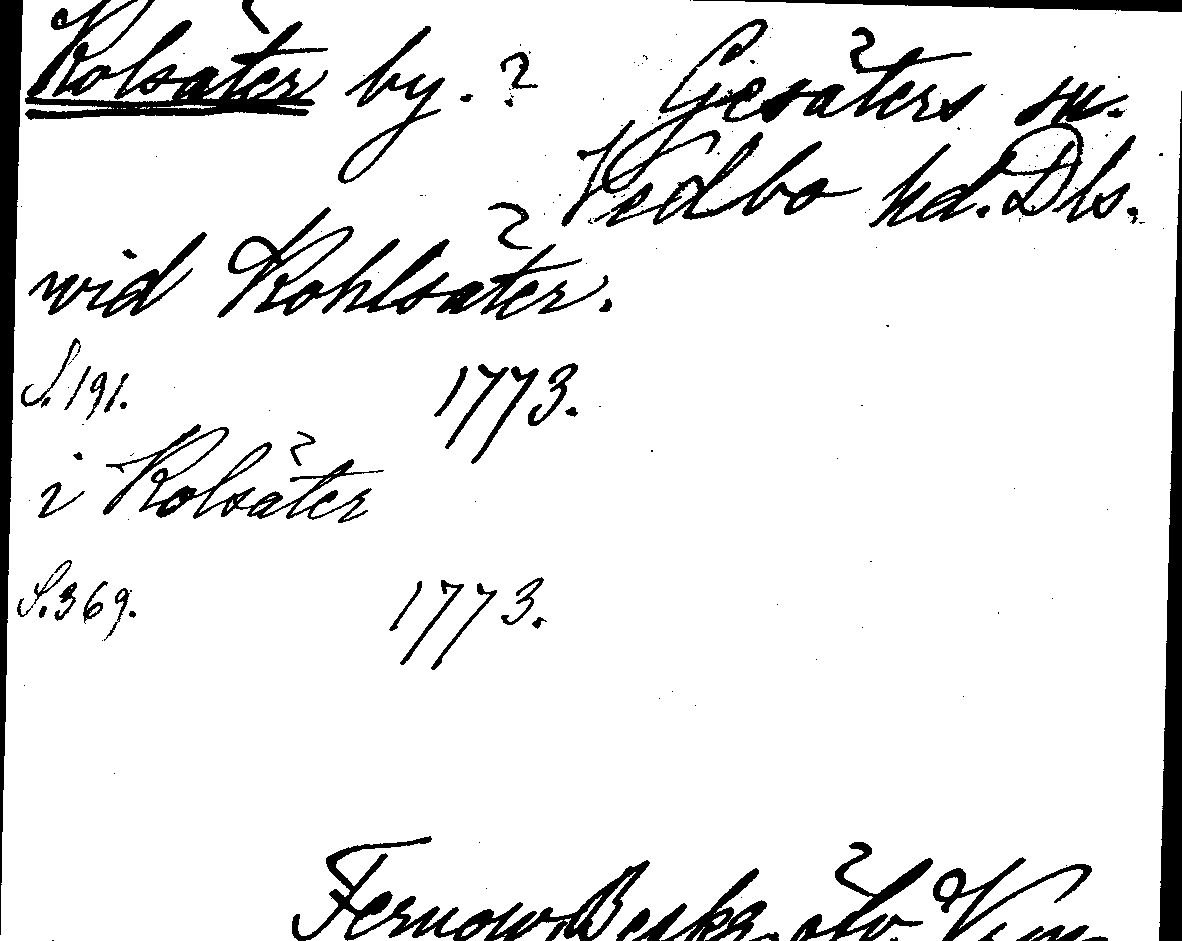 Kolsäter by. ? Gesäters sn.
Vedbo hd. Dls.
wid Kohlsäter.
S. 191. 1773.
i Kolsäter
S. 369. 1773.
Fernow, Beskr. öfv.